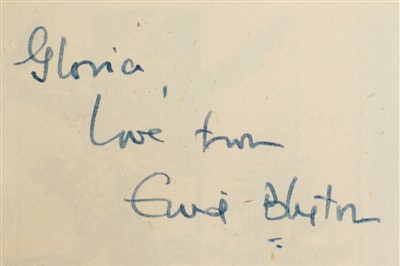 Gloria,
Love from
Enid Blyton